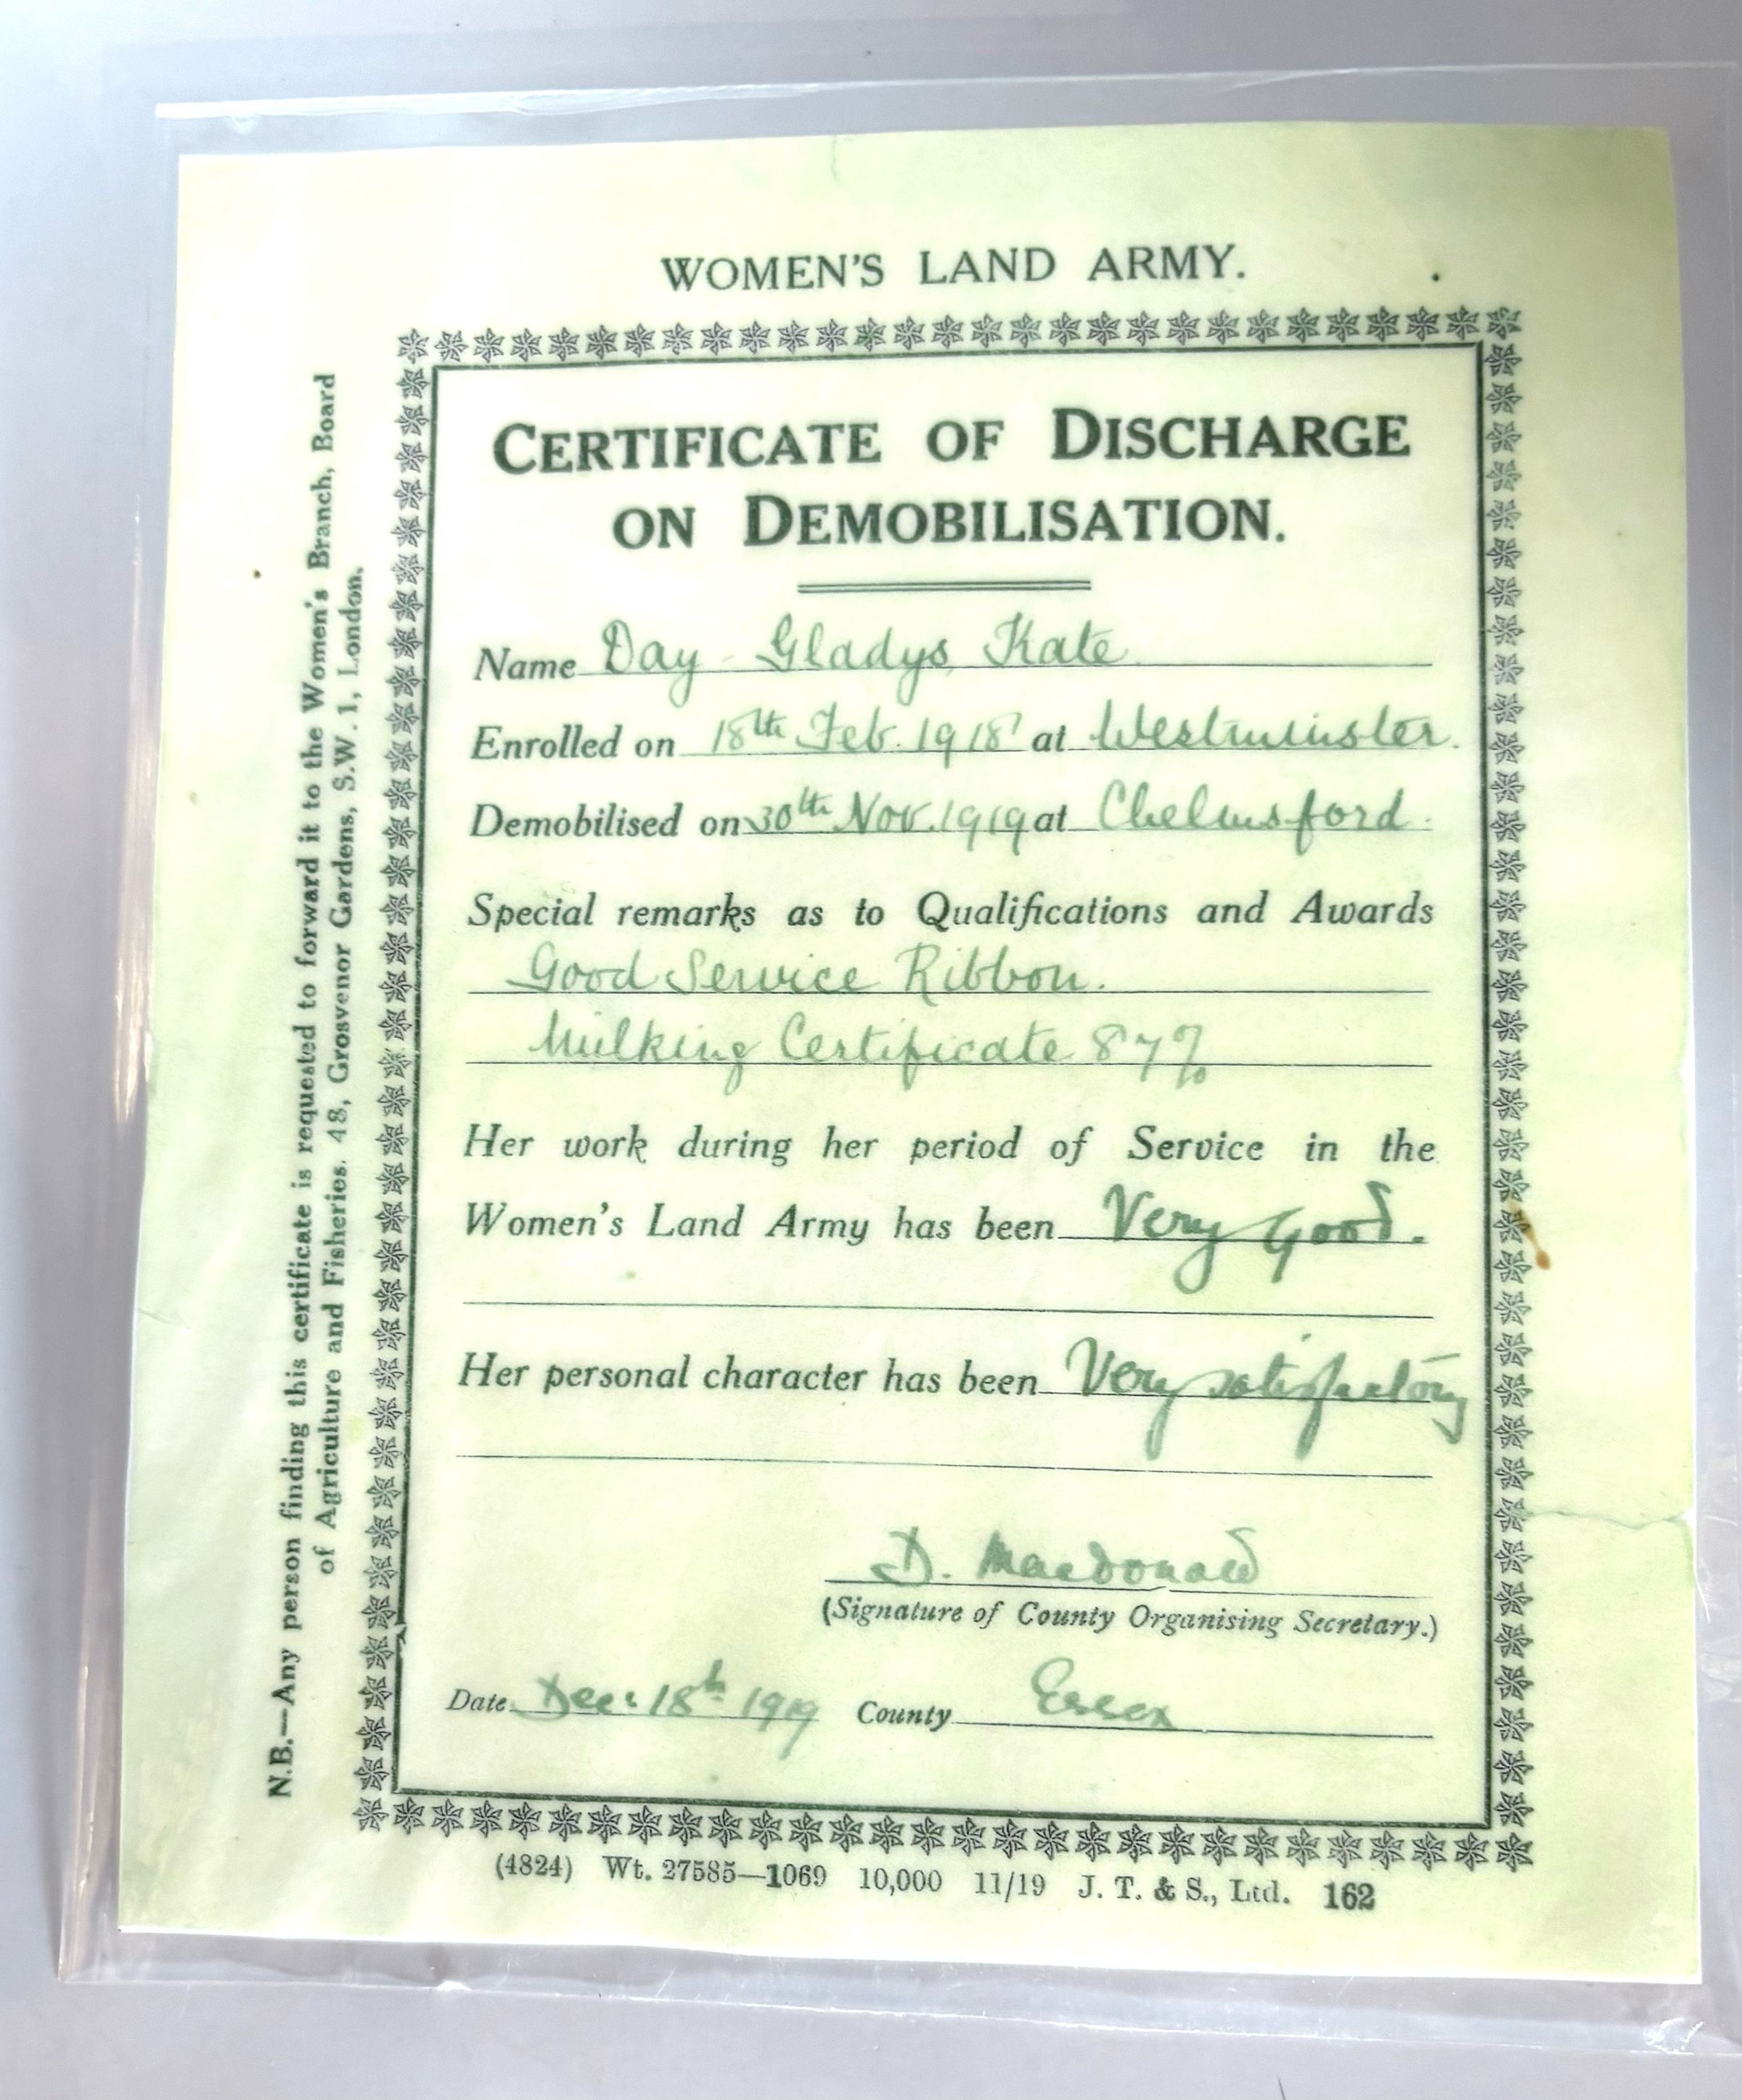 WOMEN'S LAND ARMY.
CERTIFICATE OF DISCHARGE
ON DEMOBILISATION.
Name Day - Gladys Kate
Enrolled on 18th Feb. 1918 at Westminster.
Demobilised on 30th Nov. 1919 at Chelmsford.
Special remarks as to Qualifications and Awards
Good Service Ribbon.
Milking Certificate 87%
Her work during her period of Service in the
Women's Land Army has been Very Good.
Her personal character has been Very satisfactory
D. Macdonald
(Signature of County Organising Secretary.)
Date Dec: 18th 1919 County Essex
(4824) Wt. 27585—1069 10,000 11/19 J. T. & S., Ltd. 162
N.B.—Any person finding this certificate is requested to forward it to the Women's Branch, Board
of Agriculture and Fisheries, 48, Grosvenor Gardens, S.W.1, London.